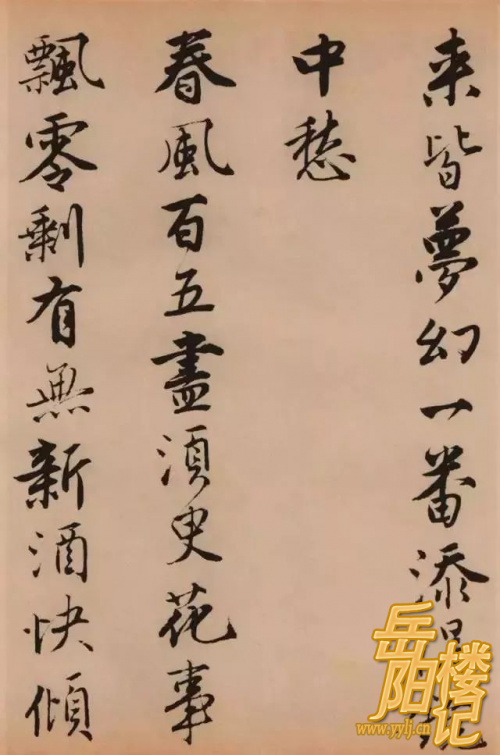 来皆夢幻一番添得鏡
中愁
春風百五盡須臾花事
飄零剩有無新酒快傾
岳阳楼记
www.yylj.cn